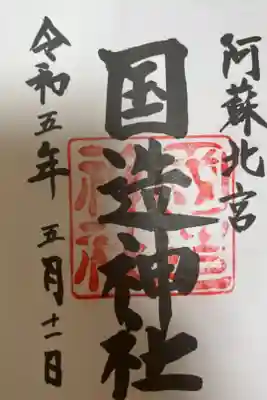 阿蘇北宮
国造神社
令和五年五月十一日